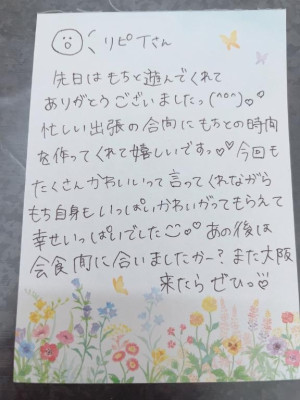 リピTさん
先日はもちと遊んでくれて
ありがとうございましたっ(^^^)♡
忙しい出張の合間にもちとの時間
を作ってくれて嬉しいですっ♡今回も
たくさんかわいいって言ってくれながら
もち自身もいっぱいかわいがってもらえて
幸せいっぱいでした♡あの後は
会食間に合いましたかー?また大阪
来たらぜひっ♡